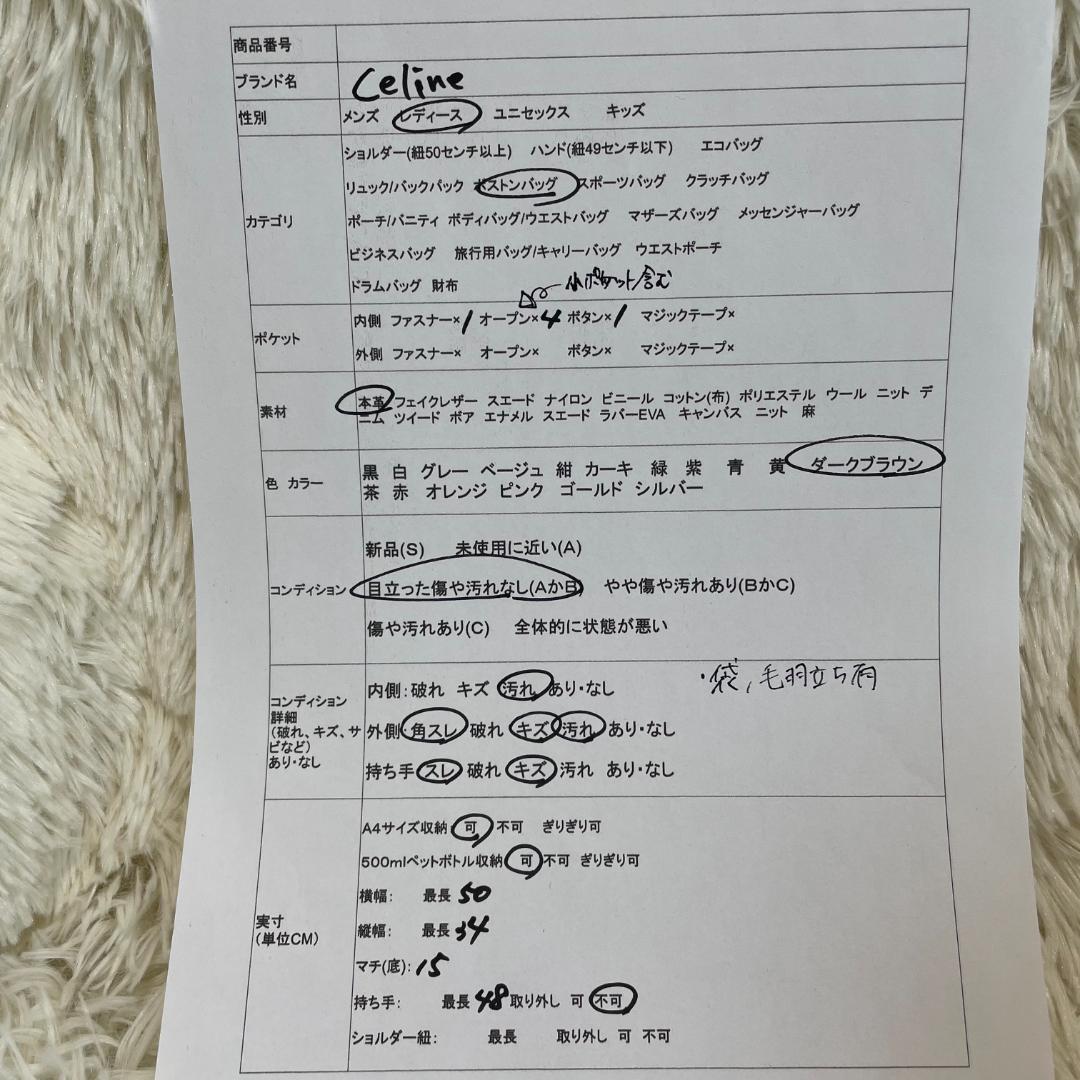 商品番号
ブランド名 Celine
性別 メンズ レディース ユニセックス キッズ
カテゴリ
ショルダー(紐50センチ以上) ハンド(紐49センチ以下) エコバッグ
リュック/バックパック ボストンバッグ スポーツバッグ クラッチバッグ
ポーチ/バニティ ボディバッグ/ウエストバッグ マザーズバッグ メッセンジャーバッグ
ビジネスバッグ 旅行用バッグ/キャリーバッグ ウエストポーチ
ドラムバッグ 財布
小ポケット含む
ポケット
内側 ファスナー×1 オープン×4 ボタン×1 マジックテープ×
外側 ファスナー× オープン× ボタン× マジックテープ×
素材
本革 フェイクレザー スエード ナイロン ビニール コットン(布) ポリエステル ウール ニット デ
ニム ツイード ボア エナメル スエード ラバーEVA キャンバス ニット 麻
色 カラー
黒 白 グレー ベージュ 紺 カーキ 緑 紫 青 黄 ダークブラウン
茶 赤 オレンジ ピンク ゴールド シルバー
コンディション
新品(S) 未使用に近い(A)
目立った傷や汚れなし(AかB) やや傷や汚れあり(BかC)
傷や汚れあり(C) 全体的に状態が悪い
コンディション
詳細
(破れ、キズ、サ
ビなど)
あり・なし
内側:破れ キズ 汚れ あり・なし
・袋,毛羽立ち有
外側:角スレ 破れ キズ 汚れ あり・なし
持ち手 スレ 破れ キズ 汚れ あり・なし
実寸
(単位CM)
A4サイズ収納 可 不可 ぎりぎり可
500mlペットボトル収納 可 不可 ぎりぎり可
横幅: 最長 50
縦幅: 最長 34
マチ(底): 15
持ち手: 最長 48 取り外し 可 不可
ショルダー紐: 最長 取り外し 可 不可